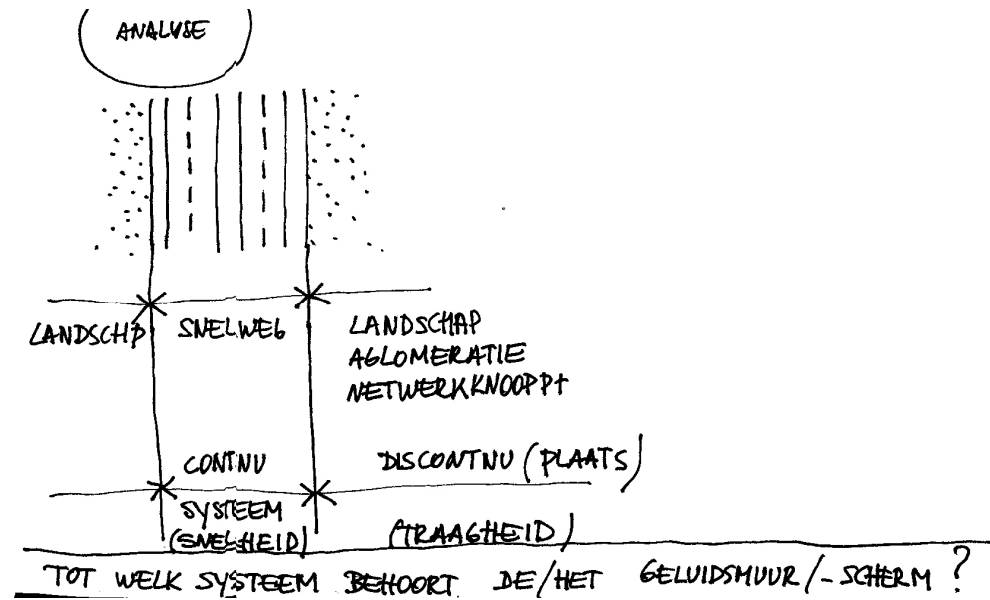 ANALYSE
LANDSCHP SNELWEG LANDSCHAP
AGLOMERATIE
NETWERKKNOOPPT
CONTNU DISCONTNU (PLAATS)
SYSTEEM
(SNELHEID) (TRAAGHEID)
TOT WELK SYSTEEM BEHOORT DE/HET GELUIDSMUUR/-SCHERM ?